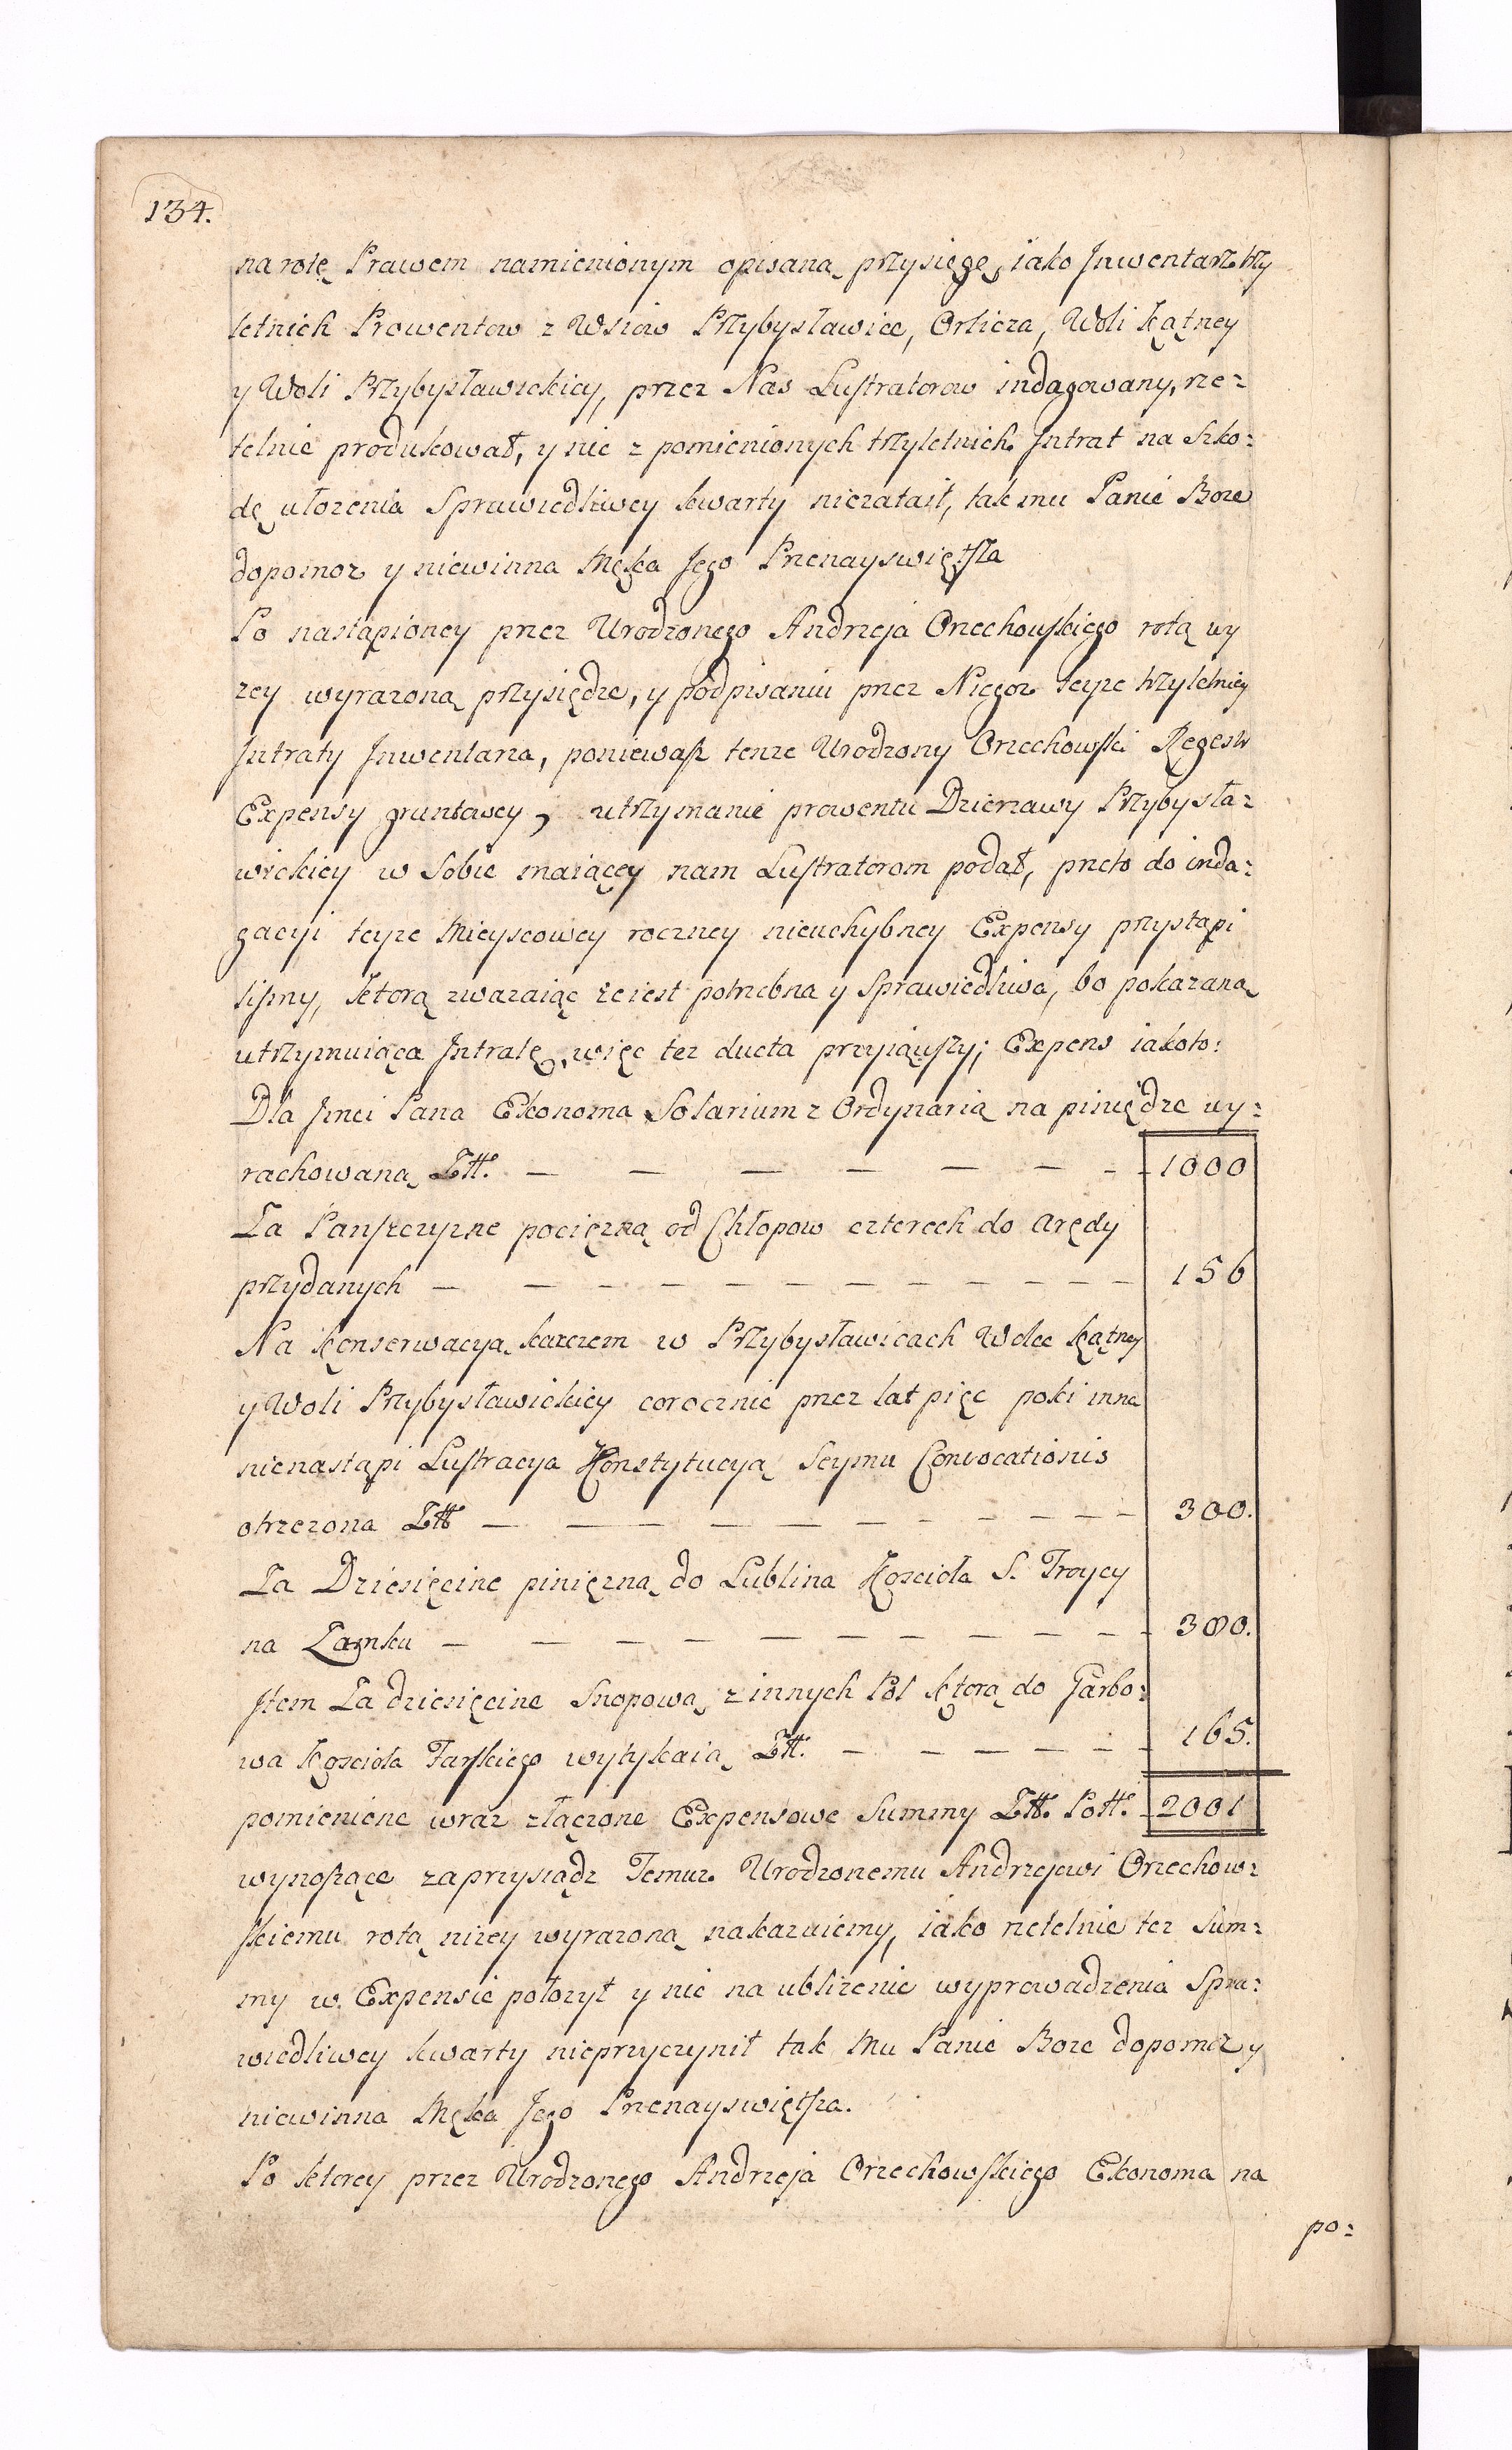 134.
na rotę Prawem namienionym opisaną przysięgę, iako Jnwentarz trzy
letnich Prowentow z Wsiow Przybysławice, Orlicza, Woli Kątney
y Woli Przybysławickiey, przez Nas Lustratorow indagowany, rze=
telnie produkował, y nic z pomienionych trzyletnich Jntrat na Szko=
dę ułozenia Sprawiedliwey kwarty niezataił, tak mu Panie Boze
dopomoz y niewinna Męka Jego Przenayswiętsza
Po nastąpioney przez Urodzonego Andrzeja Orzechowskiego rotą wy
zey wyrazoną przysiędze, y podpisaniu przez Niegoz teyze trzyletniey
Jntraty Jnwentarza, poniewasz tenze Urodzony Orzechowski Regestr
Expensy gruntowey, utrzymanie prowentu Dzierzawy Przybysła=
wickiey w Sobie maiącey nam Lustratorom podał, przeto do inda=
gacyi teyze Mieyscowey roczney nieuchybney Expensy przystąpi
lismy, Ktorą zwazaiąc ze iest potrzebna y Sprawiedliwa, bo pokazaną
utrzymuiąca Jntratę, więc tez ducta przyiąwszy; Expens iakoto:
Dla Jmci Pana Ekonoma Solarium z Ordynarią na piniędze wy=
rachowaną Złł. — — — — — — — 1000
Za Panszczyzne pociężną od Chłopow czterech do Arędy
przydanych — — — — — — — — — — — 156
Na Konserwacyą karczem w Przybysławicach Wolce Kątney
y Woli Przybysławickiey corocznie przez lat pięc poki inna
nienastąpi Lustracya Konstytucyą Seymu Convocationis
obrzezona Złł — — — — — — — — — — 300.
Za Dziesięcine pinięzną do Lublina Koscioła S. Troycy
na Zamku — — — — — — — — — — — 300.
Jtem Za dziesięcine Snopową z innych Pol Ktorą do Garbo=
wa Koscioła Farskiego wytykaią Złł. — — — — — 165.
pomienione wraz złączone Expensowe Summy Złł. Poll. 2001
wynoszące zaprzysiądz Temuz Urodzonemu Andrzejowi Orzechow=
skiemu rotą nizey wyrazoną nakazuiemy, iako rzetelnie tez Sum=
my w Expensie połozył y nic na ublizenie wyprowadzenia Spra=
wiedliwey kwarty nieprzyczynił tak Mu Panie Boze dopomoz y
niewinna Męka Jego Przenayswiętsza.
Po ktorey przez Urodzonego Andrzeja Orzechowskiego Ekonoma na
po=